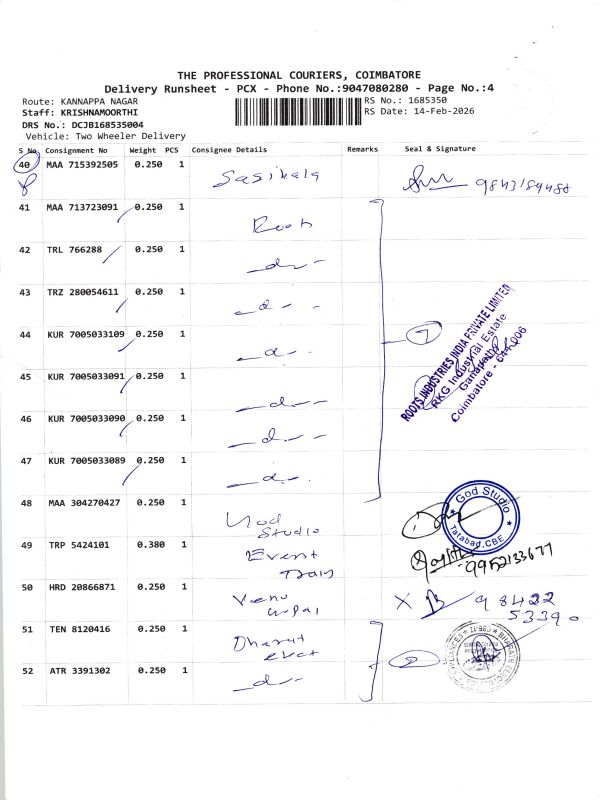 THE PROFESSIONAL COURIERS, COIMBATORE
Delivery Runsheet - PCX - Phone No.:9047080280 - Page No.:4
Route: KANNAPPA NAGAR
RS No.: 1685350
Staff: KRISHNAMOORTHI
RS Date: 14-Feb-2026
DRS No.: DCJB168535004
Vehicle: Two Wheeler Delivery
S No. Consignment No Weight PCS Consignee Details Remarks Seal & Signature
40 MAA 715392505 0.250 1 Sasikala 9843189488
41 MAA 713723091 0.250 1 Roots
42 TRL 766288 0.250 1 -do-
43 TRZ 280054611 0.250 1 -do-
44 KUR 7005033109 0.250 1 -do-
7
ROOTS INDUSTRIES INDIA PRIVATE LIMITED
RKG Industrial Estate
Ganapathy
Coimbatore - 641 006
45 KUR 7005033091 0.250 1 -do-
46 KUR 7005033090 0.250 1 -do-
47 KUR 7005033089 0.250 1 -do-
48 MAA 304270427 0.250 1 God Studio
God Studio
Tatabad, CBE
49 TRP 5424101 0.380 1 Event
9952133677
50 HRD 20866871 0.250 1 Venu
X 98422
53390
51 TEN 8120416 0.250 1 Dharut
2
52 ATR 3391302 0.250 1 -do-